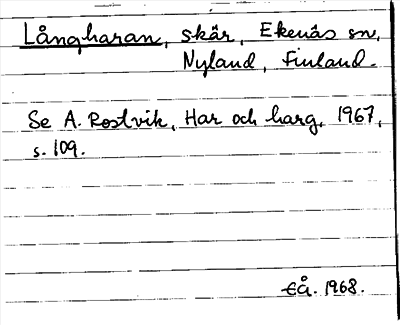 Långharan, skär, Ekenäs sn,
Nyland, Finland.
Se A. Rostvik, Har och harg, 1967,
s. 109.
EÅ. 1968.